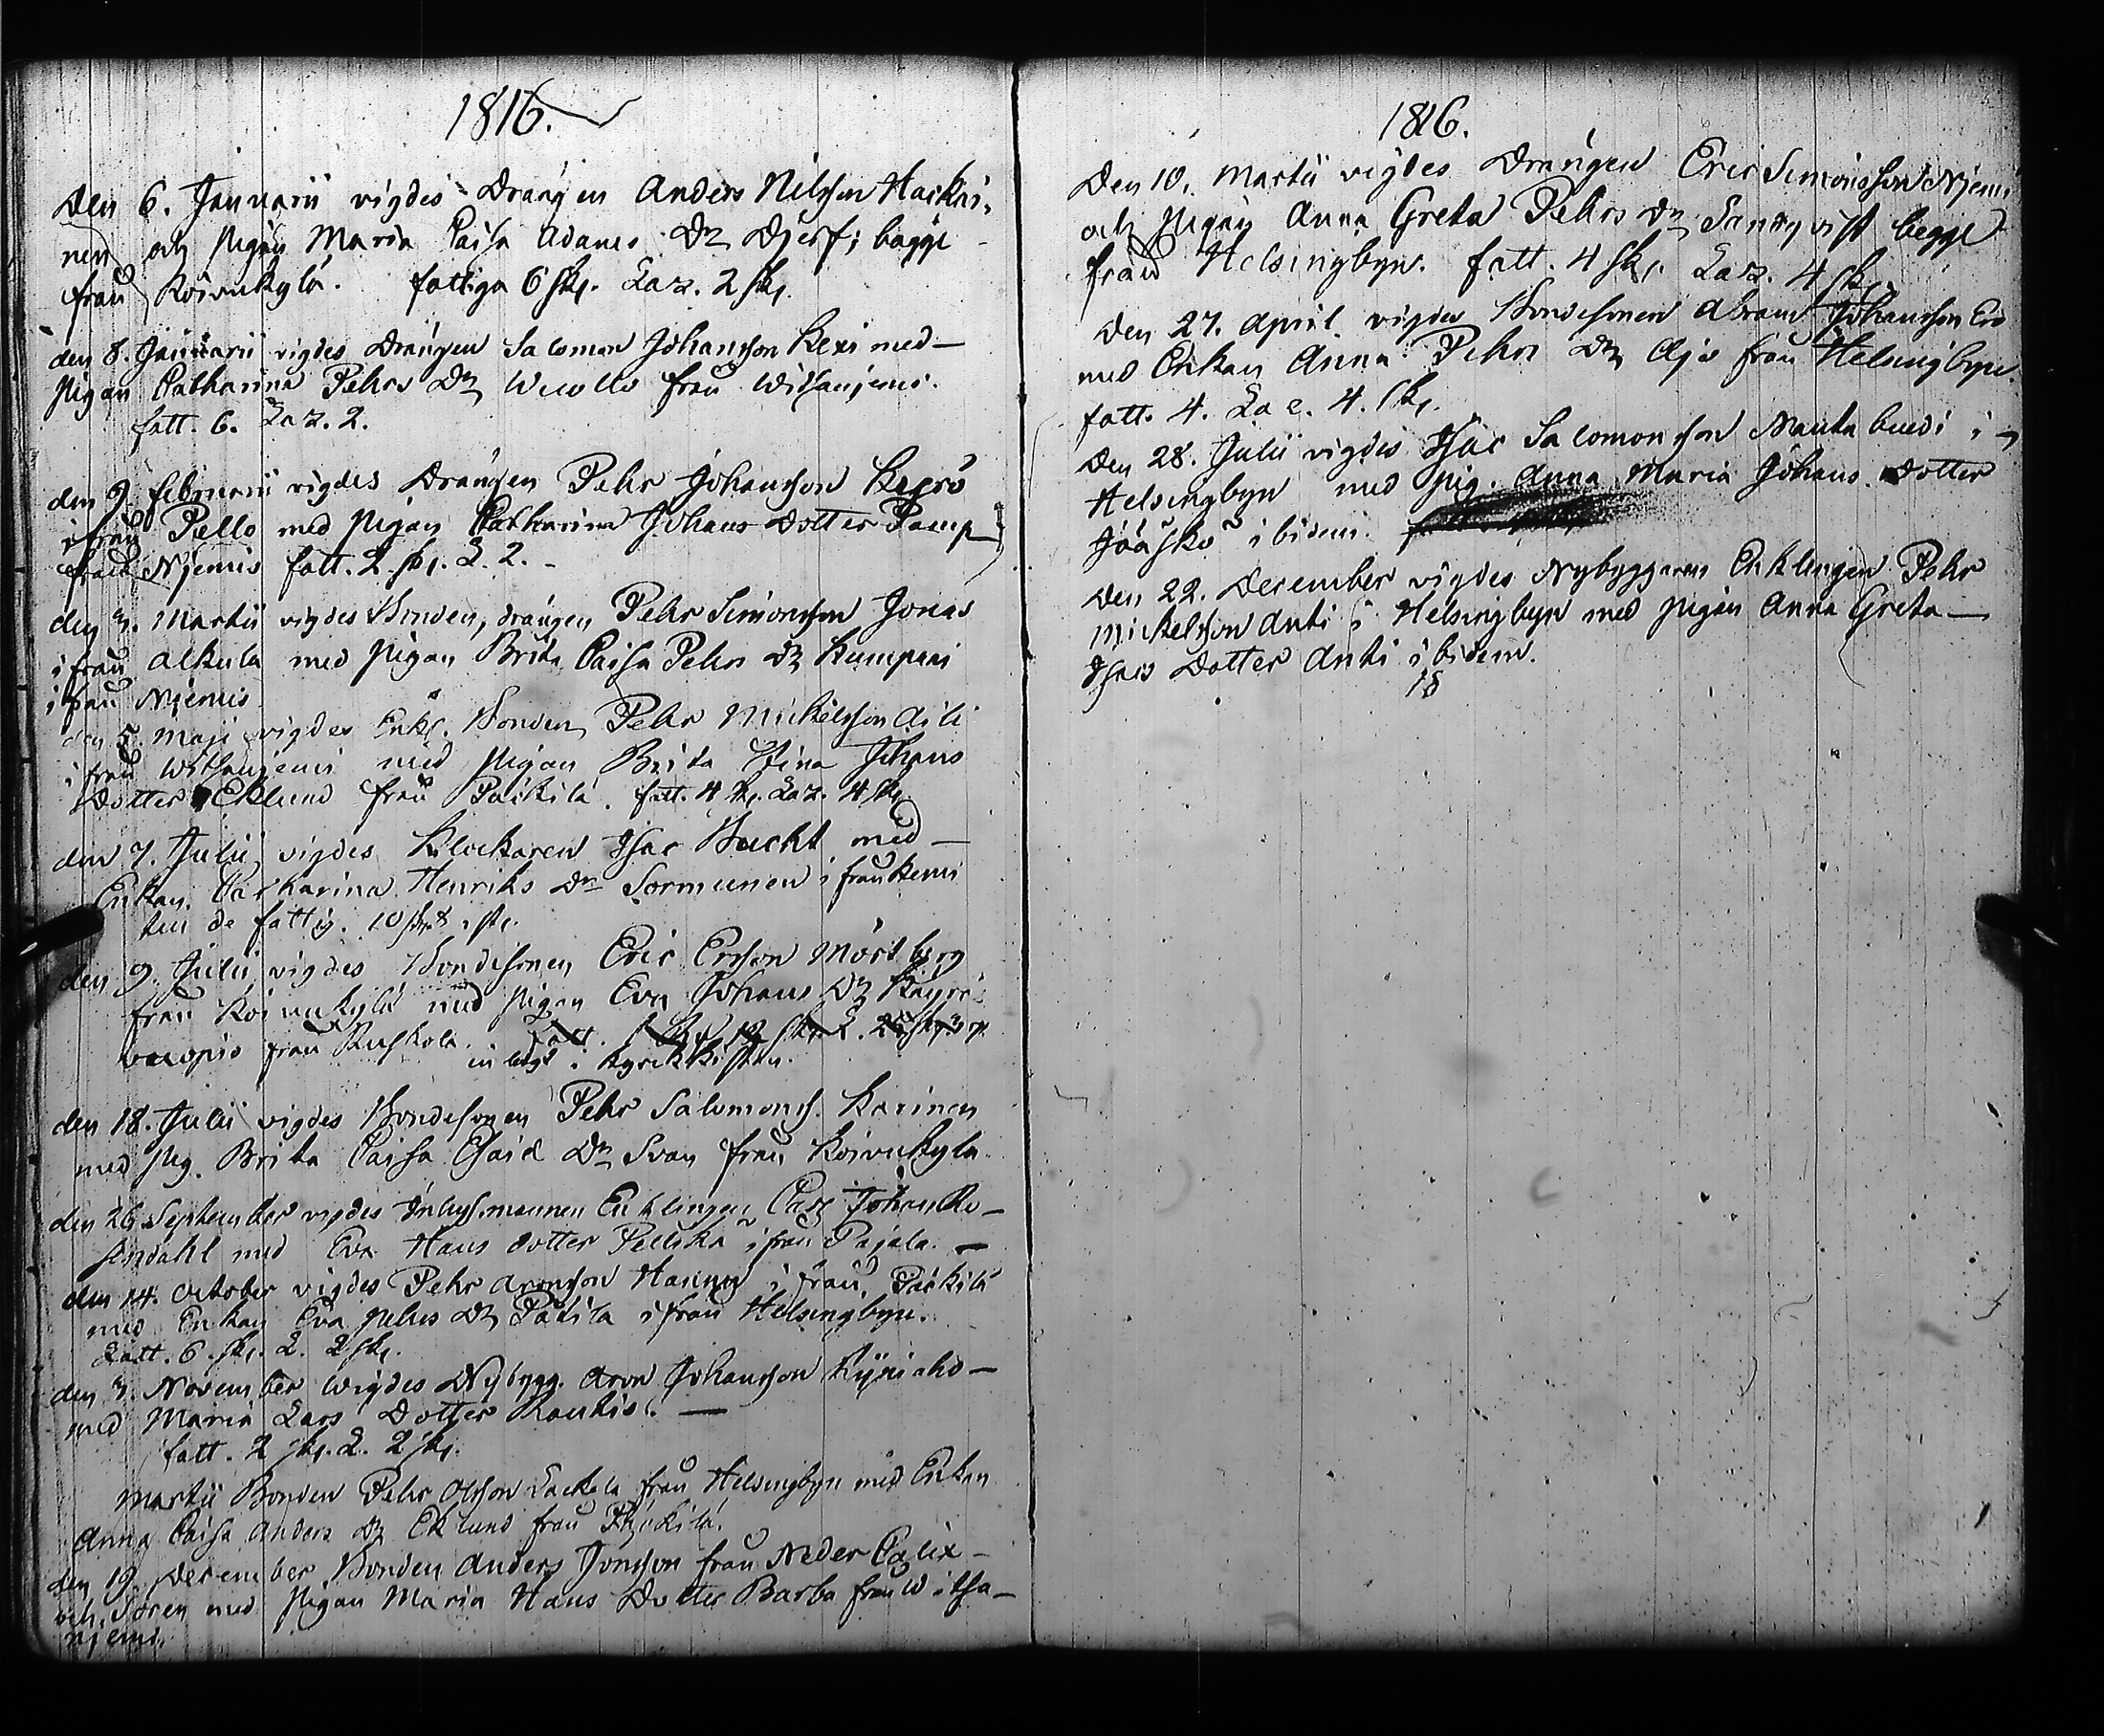 1816.
Den 6. Januarii vigdes Drängen Anders Nilsson Hackni-
nen och Pigan Maria Caisa Adams Dr Djerf; bägge
från Koivukylä. fattiga 6 sk. Laz. 2 sk.
den 8. Januarii vigdes Drängen Salomon Johansson Kexi med
Pigan Catharina Pehrs Dr Wuollo från Witsanjemi.
fatt. 6. Laz. 2.
den 9. februarii vigdes Drängen Pehr Johansson Kejrö
ifrån Pello med Pigan Catharina Johans Dotter Pamp
från Njemis fatt. 2 sk. L. 2.
den 3. Martii vigdes Bonden, drängen Pehr Simonsson Jonas
ifrån Alkula med Pigan Brita Caisa Pehrs Dr Kumpari
ifrån Njemis
den 5. Maji vigdes Enkl. Bonden Pehr Mickelsson Aili
ifrån Witsanjemi med Pigan Brita Stina Johans
Dotter Eklund från Päckilä. fatt. 4 sk. Laz. 4 sk.
den 7. Julii vigdes Klockaren Isac Bucht med
Enkan Catharina Henriks Dr Sormunen ifrån Kemi
de fattig. 10 sk.
den 9. Julii vigdes Bondesonen Eric Ersson Mörtberg
från Koivukylä med Pigan Eva Johans Dr Käyrä-
vuopio från Ruskola. Fatt.
inlagt i kyrckkistan.
den 18. Julii vigdes Bondesonen Pehr Salomons. Karinen
med Pig. Brita Caisa Esaiæ Dr Svan från Koivukyla
den 26 September vigdes Inhysmannen Enklingen Carl Johan Ro-
sendahl med Eva Hans dotter Pellika ifrån Pajala.
den 14. October vigdes Pehr Aronsson Hannu ifrån Päckilä
med Enkan Eva Pehrs Dr Päkila ifrån Helsingbyn.
Fatt. 6. sk. L. 2 sk.
den 3. November wigdes Nybygg. Aron Johansson Kyrö aho
med Maria Lars Dotter Rautio.
fatt. 2 sk. L. 2 sk.
Martii Bonden Pehr Olsson Lackala från Helsingbyn med Enkan
Anna Caisa Anders Dr Eklund från Päckilä.
den 19 December Bonden Anders Jönsson från Neder Calix
och Sören med Pigan Maria Hans Dotter Barba från Witsa-
njemi.
1816.
Den 10. Martii vigdes Drängen Eric Simonsson Njemi
och Pigan Anna Greta Pehrs Dr Sandqvist begge
från Helsingbyn. fatt. 4 sk. Laz. 4 sk.
Den 27. April vigdes Bondesonen Abram Johansson Ero
med Enkan Anna Pehrs Dr Ajo från Helsingbyn.
fatt. 4. Laz. 4. sk.
Den 28. Julii vigdes Isac Salomonsson Mauta buedi i
Helsingbyn med Pig. Anna Maria Johans Dotter
Jääskö ibidem.
Den 22. December vigdes Nybyggaren Enklingen Pehr
Mickelsson Anti i Helsingbyn med Pigan Anna Greta
Isacs Dotter Anti ibidem.
18